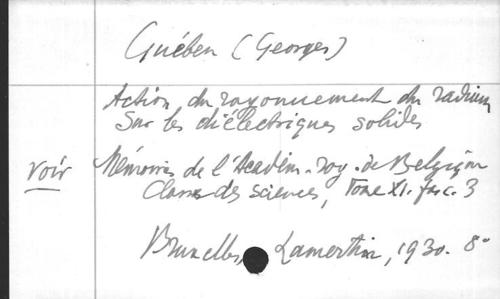 Guében (Georges)
Action du rayonnement du radium
sur les diélectriques solides
voir
Mémoires de l'Académ. roy. de Belgique
Classe des sciences, Tome XI. fasc. 3
Bruxelles, Lamertin, 1930. 8°